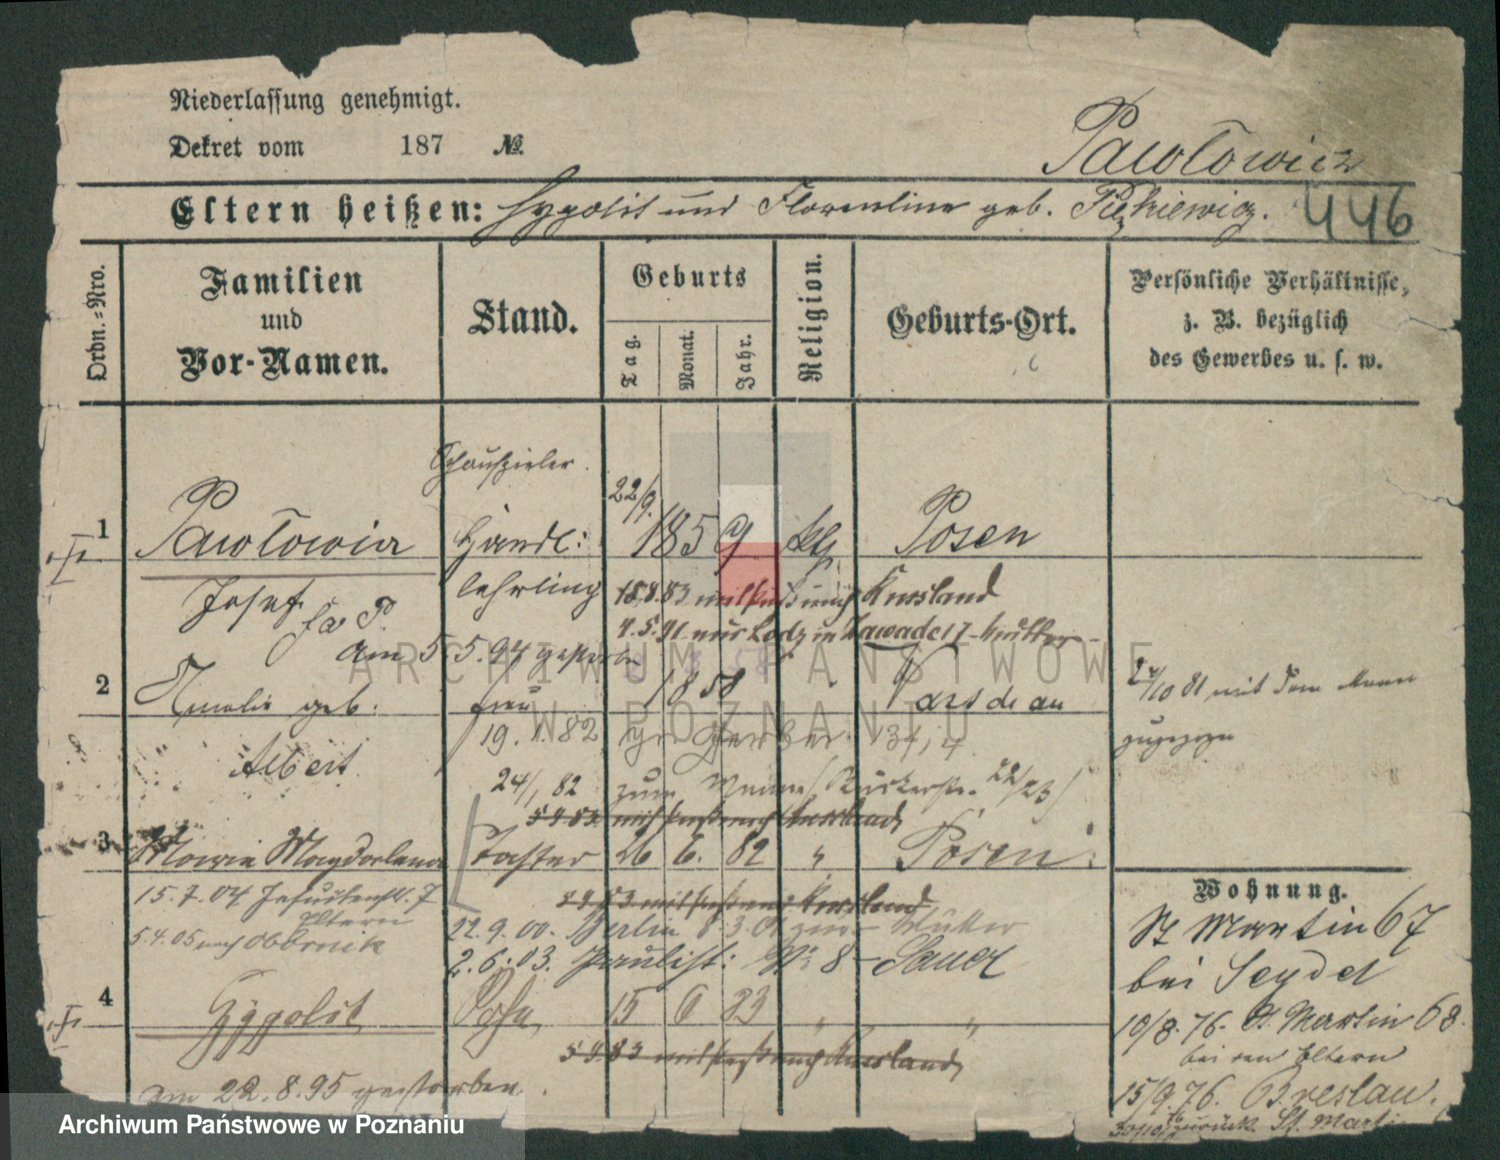 Niederlassung genehmigt.
Dekret vom 187 №
Pawłowicz
Eltern heißen: Hypolit und Florentine geb. 446
Ordn.-Nro.
Familien und Vor-Namen.
Stand.
Geburts
Tag. Monat. Jahr.
Religion.
Geburts-Ort.
Persönliche Verhältnisse, z. B. bezüglich des Gewerbes u. s. w.
Schauspieler.
1 Pawłowicz Handl: 22/9. 1859 Posen
Josef lehrling 18.8.83 mit Paß nach Russland
4.5.91 aus Lodz in Zawade 17
am 5.5.94 gestorben
2 Amalie geb. frau 1858
10 81 mit dem Mann
zugezogen
Albert 19.1.82 gr. Gerber
24/1 82 zum 22/23
5 9 83 mit Paß nach Russland
3 Maria Magdalena Tochter 26 6. 82 " Posen
Wohnung.
15.7.04 7
Eltern
5.4.05 nach Obornik
5 9 83 mit Paß nach Russland
22.9.00. Berlin 8.3.01 zur Mutter
2.6.03. Paulist: 8
St Martin 67
bei Seydel
4 Hypolit Sohn 15 6 83 " "
10/8.76. St. Martin 68.
bei den Eltern
5 9.83 mit Paß nach Russland
15/9.76. Breslau.
am 22.8.95 gestorben.
zurück St. Martin
ARCHIWUM PAŃSTWOWE
W POZNANIU
Archiwum Państwowe w Poznaniu